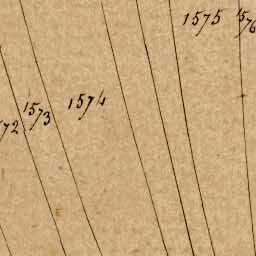 1575
1576
1573
1574